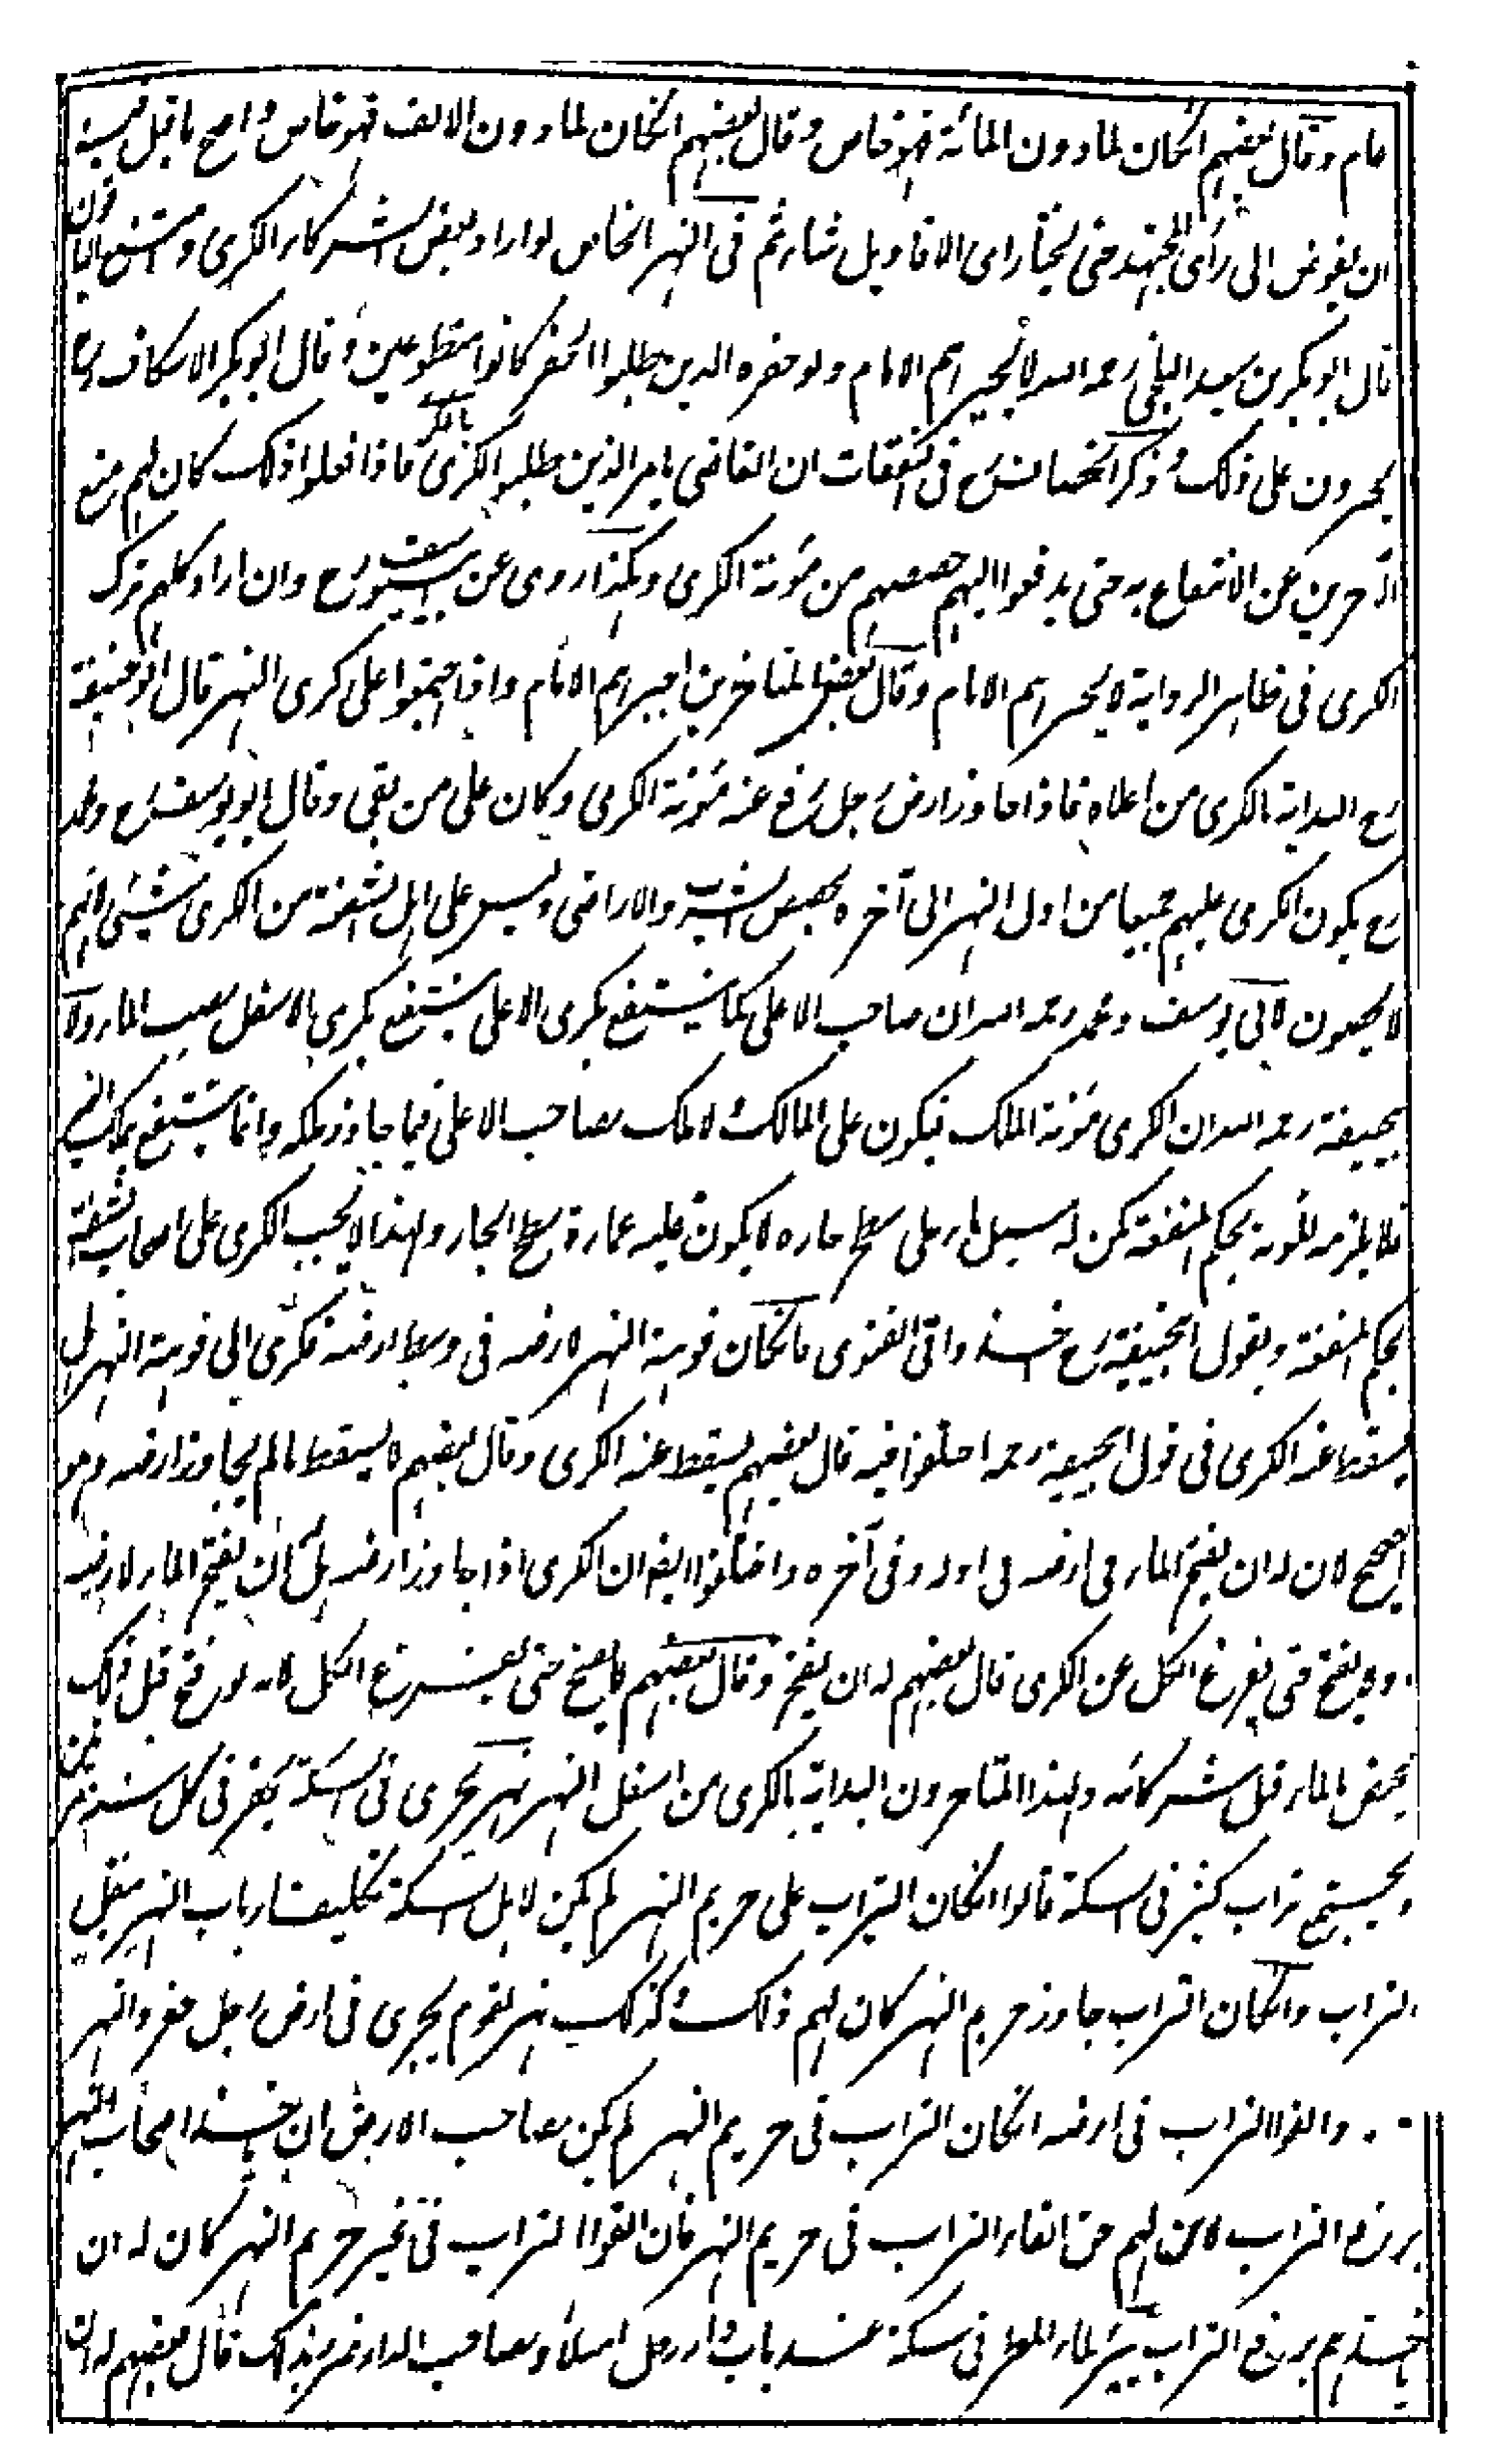 عام وقال بعضهم انكان لمادون المائة فهو خاص وقال بعضهم انكان لما دون الالف فهو خاص واصح ما قيل فيه
ان يفوض الى رأى المجتهد حتى يختار اى الاقاويل شاء ثم فى النهر الخاص لو اراد بعض الشركاء الكرى وامتنع الباقون
قال ابو بكر بن سعيد البلخى رحمه الله لا يجبرهم الامام ولو حفره الذين طلبوا الحفر كانوا متطوعين وقال ابو بكر الاسكاف رح
يجبرون على ذلك وذكر الخصاف رح فى النفقات ان القاضى يامر الذين طلبوا الكرى بالكرى فاذا فعلوا ذلك كان لهم منع
الآخرين عن الانتفاع به حتى يدفعوا اليهم حصصهم من مؤنة الكرى وهكذا روى عن ابى يوسف رح وان اراد كلهم ترك
الكرى فى ظاهر الرواية لا يجبرهم الامام وقال بعض المتاخرين اجبرهم الامام واذا اجتمعوا على كرى النهر قال ابو حنيفة
رح البداية بالكرى من اعلاه فاذا جاوز ارض رجل رفع عنه مؤنة الكرى وكان على من بقى وقال ابو يوسف رح ومحمد
رح يكون الكرى عليهم جميعا من اول النهر الى آخره بحصص الشرب والاراضى وليس على اهل الشفة من الكرى شيئ لانهم
لا يحصون لابى يوسف ومحمد رحمه الله ان صاحب الاعلى كما ينتفع بكرى الاعلى ينتفع بكرى الاسفل لصب الماء ولا
بيحنيفة رحمه الله ان الكرى مؤنة الملك فيكون على المالك ولا ملك لصاحب الاعلى فيما جاوز ملكه وانما ينتفع بملك الغير
فلا يلزمه المؤنة بحكم المنفعة كمن له سيل ماء على سطح جاره لا يكون عليه عمارة سطح الجار ولهذا لا يجب الكرى على اصحاب الشفة
بحكم المنفعة وبقول ابيحنيفة رح اخذوا فى الفتوى فانكان فوهة النهر لارضه فى وسط ارضه فكرى الى فوهة النهر هل
يسقط عنه الكرى فى قول ابيحنيفة رحمه اختلفوا فيه قال بعضهم يسقط عنه الكرى وقال بعضهم لا يسقط مالم يجاوز ارضه وهو
الصحيح لان له ان يفتح الماء فى ارضه فى اوله وفى آخره واختلفوا ايضا ان الكرى اذا جاوز ارضه هل له ان يفتح الماء لارضه
ولا يفتح حتى يفرغ الكل عن الكرى قال بعضهم له ان يفتح وقال بعضهم لا يفتح حتى يفرغ الكل لانه لو فتح قبل ذلك
يختص بالماء قبل شركائه ولهذا المتاخرون البداية بالكرى من اسفل النهر نهر يجرى فى سكة يحفر فى كل سنة مرتين
ويجتمع تراب كثير فى السكة قالوا انكان التراب على حريم النهر لم يكن لاهل السكة تكليف ارباب النهر بنقل
التراب وانكان التراب جاوز حريم النهر كان لهم ذلك وكذلك نهر لقوم يجرى فى ارض رجل حفروا النهر
والقوا التراب فى ارضه انكان التراب فى حريم النهر لم يكن لصاحب الارض ان ياخذ اصحاب النهر
برفع التراب لان لهم حق القاء التراب فى حريم النهر فان القوا التراب فى غير حريم النهر كان له ان
ياخذهم برفع التراب بئر لماء المطر فى سكة عند باب دار رجل امتلأ ولصاحب الدار ضرر بذلك قال بعضهم له ان